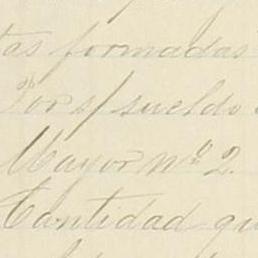 tas formadas
Por s/ sueldo
Mayor Nº 2.
Cantidad qu